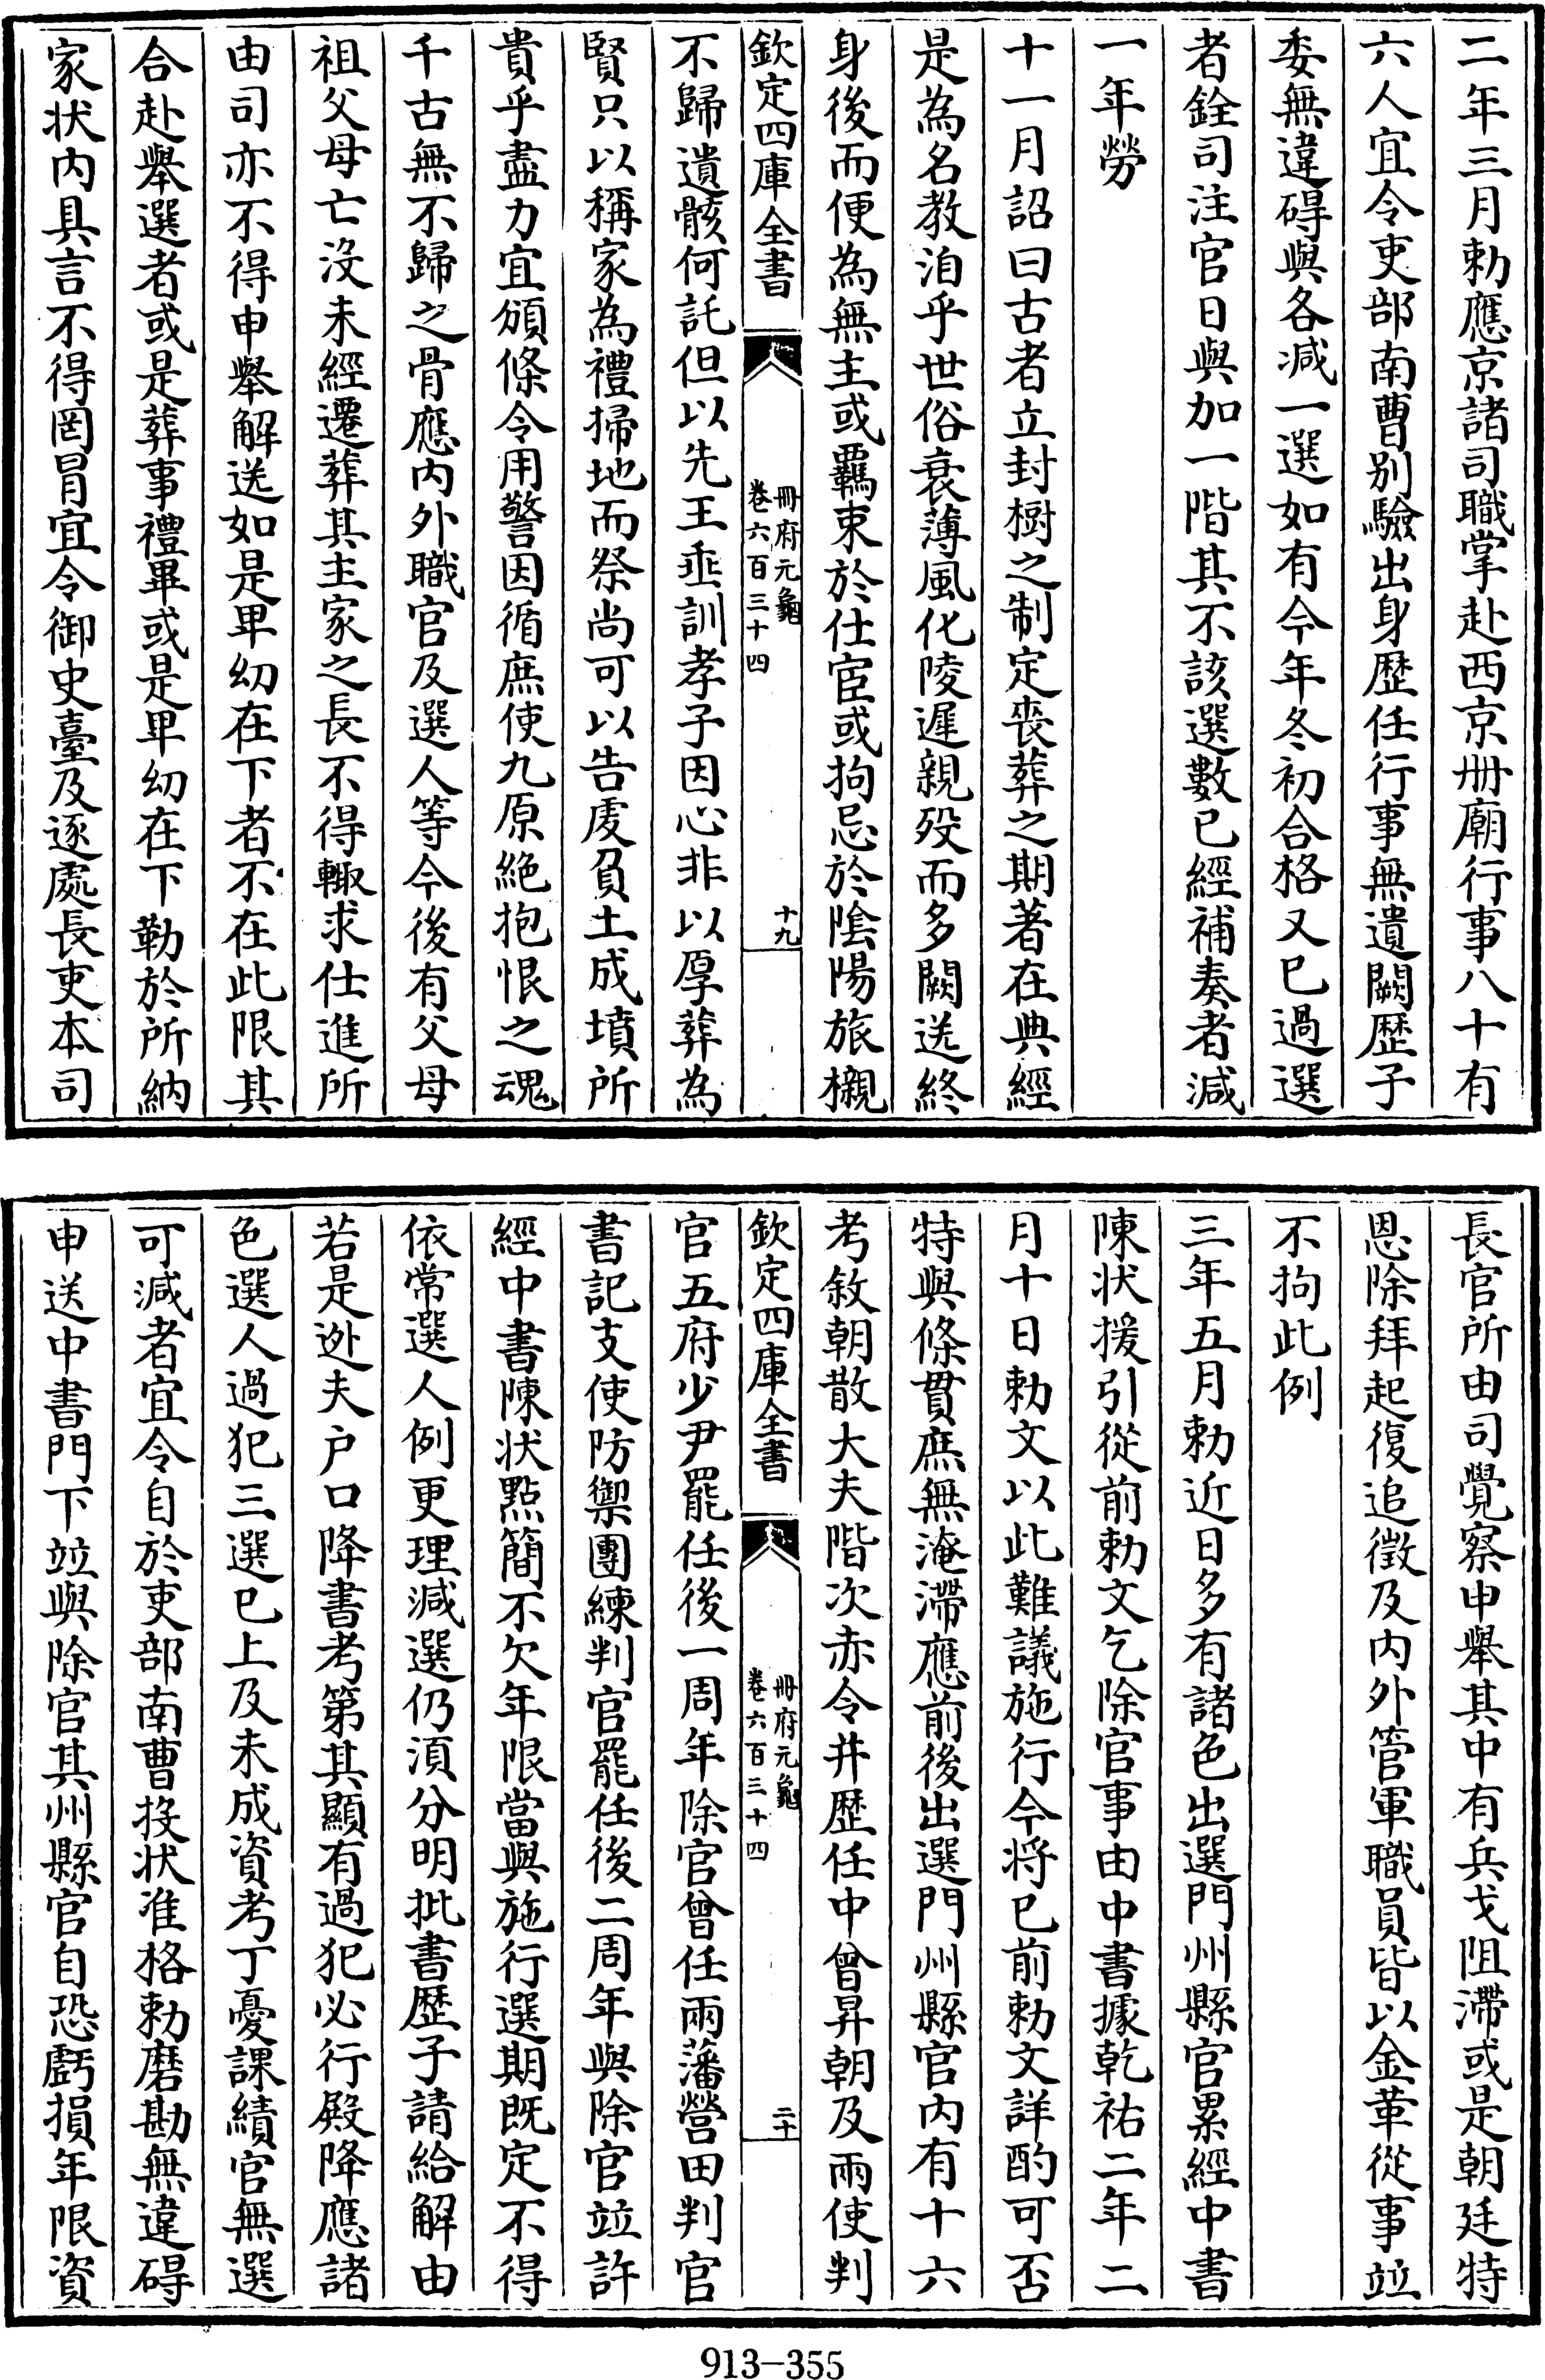 二年三月勅應京諸司職掌赴西京册廟行事八十有
六人宜令吏部南曹别驗出身歴任行事無遺闕歴子
委無違碍與各减一選如有今年冬初合格又已過選
者銓司注官日與加一階其不該選數已經補奏者減
一年勞
十一月詔曰古者立封樹之制定喪葬之期著在典經
是為名教洎乎世俗衰薄風化陵遲親殁而多闕送終
身後而便為無主或羈束於仕宦或拘忌於陰陽旅櫬
欽定四庫全書
冊府元龜
卷六百三十四
十九
不歸遺骸何託但以先王垂訓孝子因心非以厚葬為
賢只以稱家為禮掃地而祭尚可以告䖍負土成墳所
貴乎盡力宜頒條令用警因循庶使九原絶抱恨之魂
千古無不歸之骨應内外職官及選人等今後有父母
祖父母亡沒未經遷葬其主家之長不得輙求仕進所
由司亦不得申舉解送如是卑幼在下者不在此限其
合赴舉選者或是葬事禮畢或是卑幼在下勒於所納
家状内具言不得罔冐宜令御史臺及逐處長吏本司
長官所由司覺察申舉其中有兵戈阻滯或是朝廷特
恩除拜起復追徵及内外管軍職員皆以金革從事並
不拘此例
三年五月勅近日多有諸色出選門州縣官累經中書
陳状援引從前勅文乞除官事由中書據乾祐二年二
月十日勅文以此難議施行今將已前勅文詳酌可否
特與條貫庶無淹滯應前後出選門州縣官内有十六
考敘朝散大夫階次赤令并歴任中曾昇朝及兩使判
欽定四庫全書
冊府元龜
卷六百三十四
二十
官五府少尹罷任後一周年除官曾任兩藩營田判官
書記支使防禦團練判官罷任後二周年與除官並許
經中書陳状點簡不欠年限當與施行選期既定不得
依常選人例更理减選仍湏分明批書歴子請給解由
若是迯夫户口降書考第其顯有過犯必行殿降應諸
色選人過犯三選已上及未成資考丁憂課績官無選
可減者宜令自於吏部南曹投状准格勅磨勘無違碍
申送中書門下並與除官其州縣官自恐虧損年限資
913-355